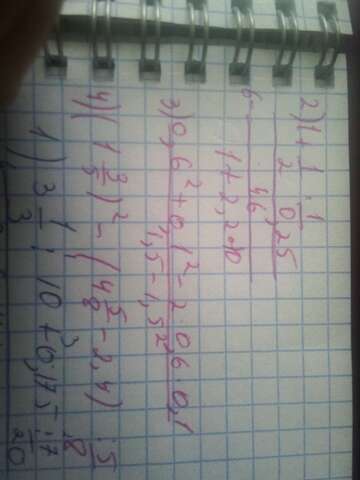 2) 1 + 1/2 : 1/0,25
6 - 46
1 + 2,2·10
3) 0,6² + 0,1² - 2·0,6·0,1
1,5 - 1,5²
4) (1 2/5)² - (4 5/8 - 2,4) : 5/8
1) 3 1/3 : 10 + 0,175 : 7/20